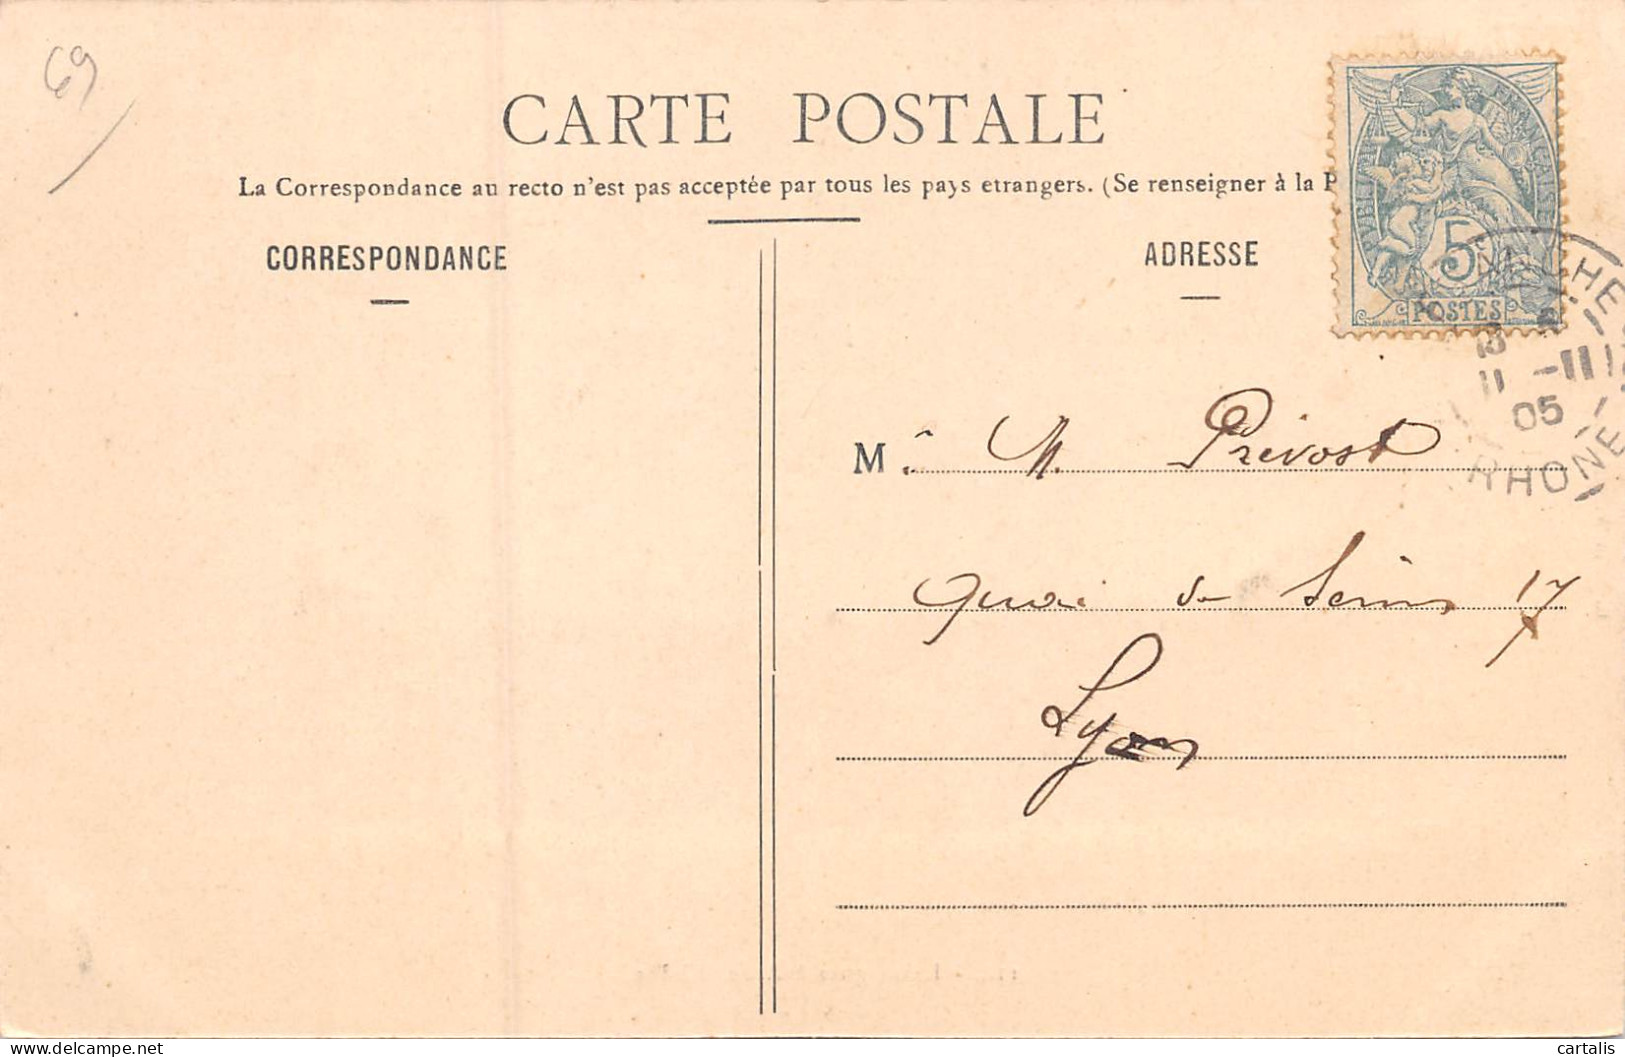 69
CARTE POSTALE
La Correspondance au recto n'est pas acceptée par tous les pays etrangers. (Se renseigner à la P
CORRESPONDANCE
ADRESSE
FRANÇAISE
5
POSTES
11 -11
05
RHONE
M M. Prévost
Quai de 17
Lyon
cartalis
www.delcampe.net